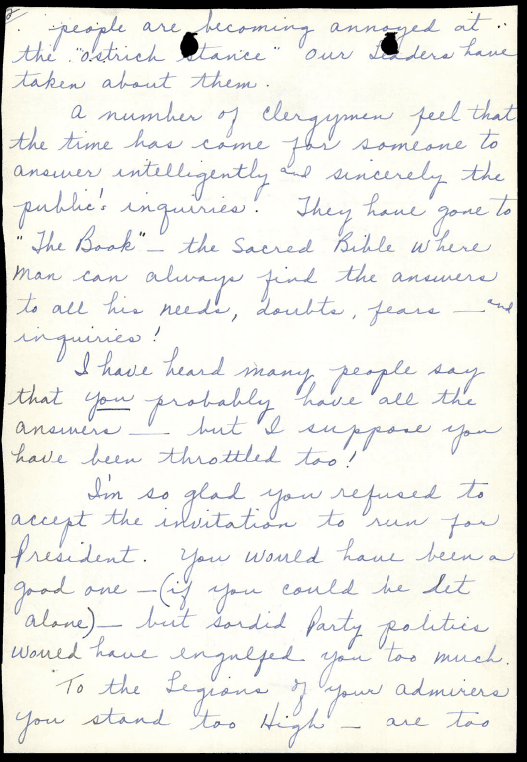 2.
. people are becoming annoyed at
the "ostrich stance" our Leaders have
taken about them.
A number of clergymen feel that
the time has come for someone to
answer intelligently and sincerely the
public's inquiries. They have gone to
"The Book" — the Sacred Bible where
man can always find the answers
to all his needs, doubts, fears — and
inquiries!
I have heard many people say
that you probably have all the
answers — but I suppose you
have been throttled too!
I'm so glad you refused to
accept the invitation to run for
President. You would have been a
good one — (if you could be let
alone) — but sordid Party politics
would have engulfed you too much.
To the Legions of your admirers
you stand too High — are too